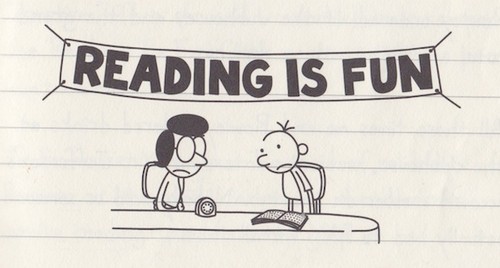 READING IS FUN